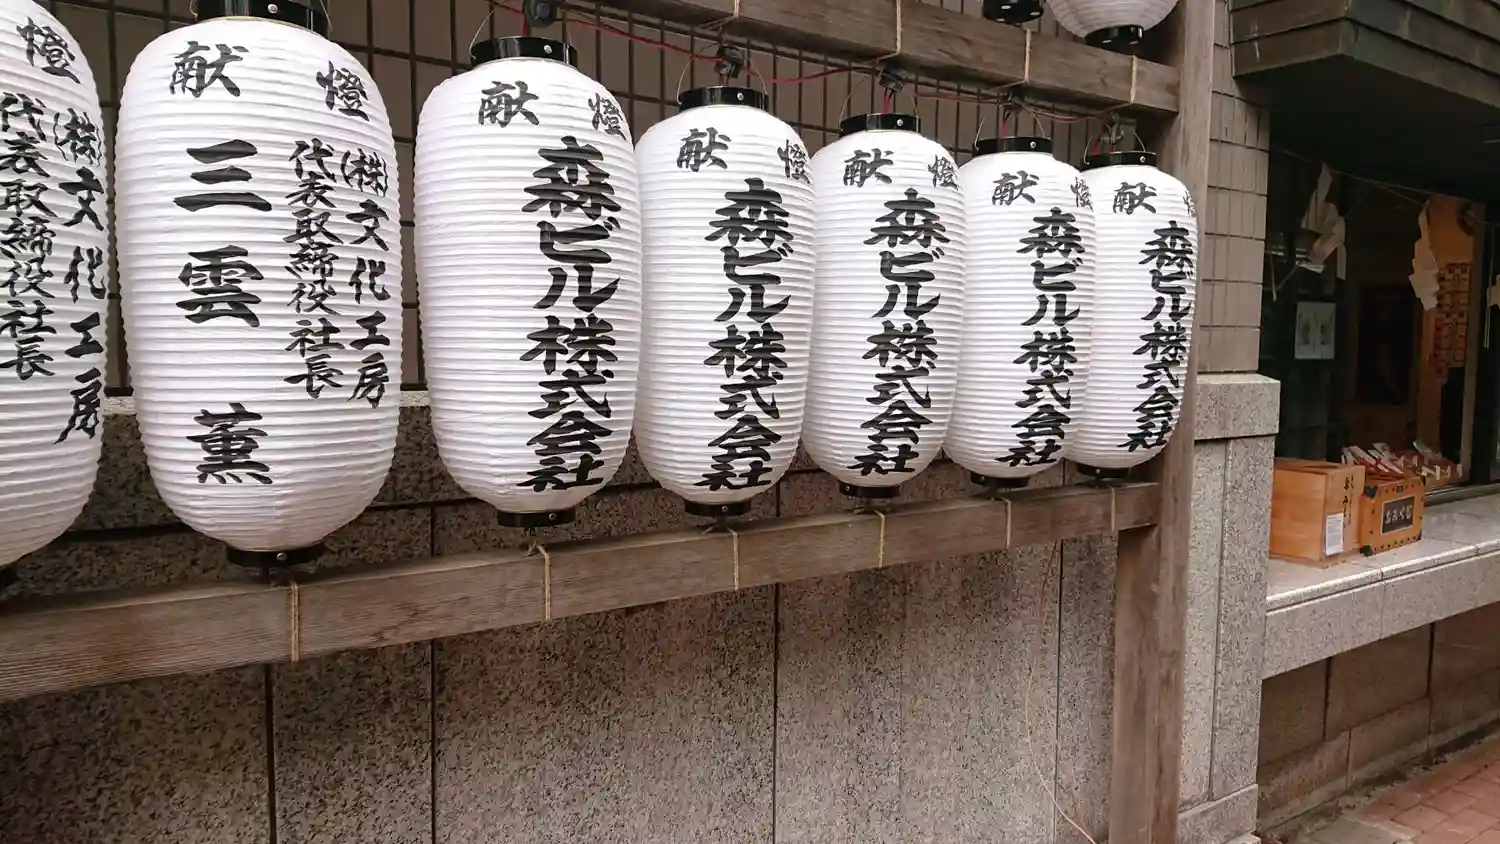 燈
(株)文化工房
代表取締役社長
献燈
(株)文化工房
代表取締役社長
三雲薫
献燈
森ビル株式会社
献燈
森ビル株式会社
献燈
森ビル株式会社
献燈
森ビル株式会社
献燈
森ビル株式会社
おみくじ
おみくじ